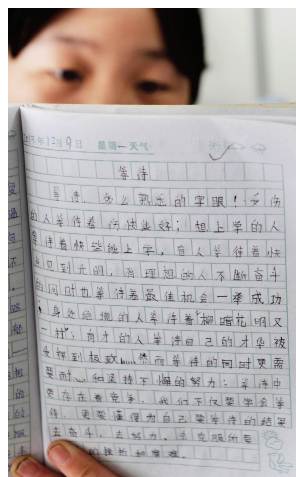 2013年12月9日 星期一 天气
等待
等待,多么熟悉的字眼!受伤
的人等待着伤快些好;想上学的人
等待着快些能上学,盲人等待着快
点见到光明,有理想的人不断奋斗
的同时也等待着最佳机会一举成功
,身处绝境的人等待着“柳暗花明又
一村”;有才的人等待自己的才华被
发挥到极致……然而等待的同时更需
要耐心和坚持不懈的努力;等待中
更存在着竞争,我们不仅要学会等
待,更要懂得为自己要等待的结果
去奋斗,去努力,并克服所
的挫折和磨难。